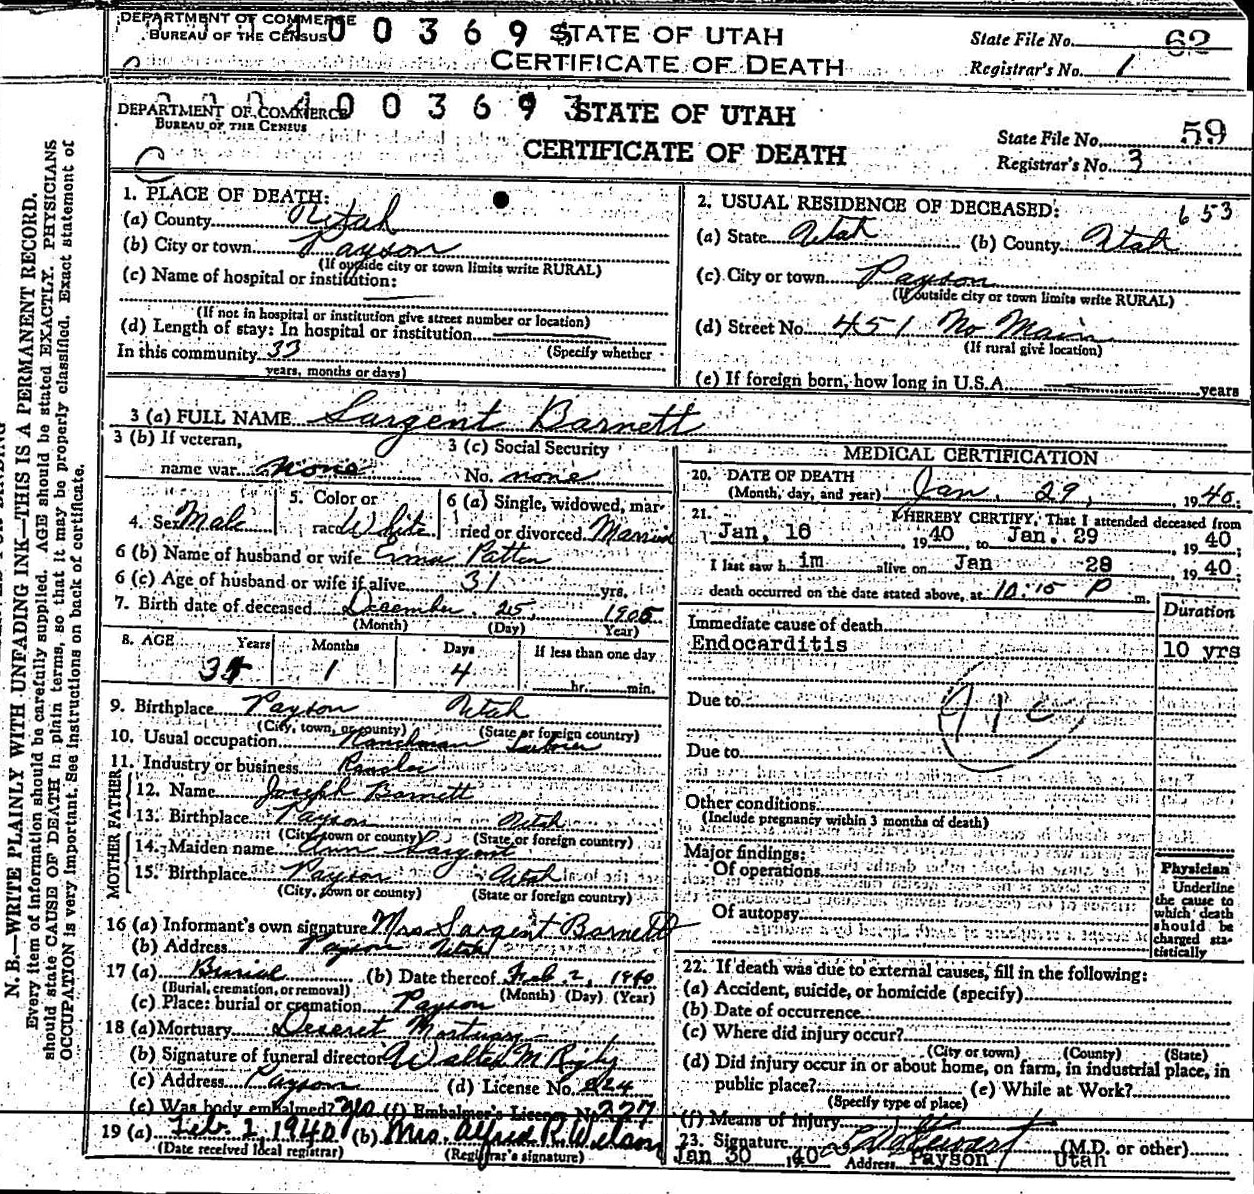 DEPARTMENT OF COMMERCE
BUREAU OF THE CENSUS
4 0 0 3 6 9
STATE OF UTAH
CERTIFICATE OF DEATH
State File No. 62
Registrar's No. 1
DEPARTMENT OF COMMERCE
BUREAU OF THE CENSUS
4 0 0 3 6 9 3
STATE OF UTAH
CERTIFICATE OF DEATH
State File No. 59
Registrar's No. 3
N. B.—WRITE PLAINLY WITH UNFADING INK—THIS IS A PERMANENT RECORD.
Every item of information should be carefully supplied. AGE should be stated EXACTLY. PHYSICIANS
should state CAUSE OF DEATH in plain terms, so that it may be properly classified. Exact statement of
OCCUPATION is very important. See instructions on back of certificate.
1. PLACE OF DEATH:
(a) County Utah
(b) City or town Payson
(If outside city or town limits write RURAL)
(c) Name of hospital or institution:
(If not in hospital or institution give street number or location)
(d) Length of stay: In hospital or institution
In this community 33 (Specify whether
years, months or days)
2. USUAL RESIDENCE OF DECEASED: 653
(a) State Utah (b) County Utah
(c) City or town Payson
(If outside city or town limits write RURAL)
(d) Street No. 451 No Main
(If rural give location)
(e) If foreign born, how long in U.S.A. years
3 (a) FULL NAME Sargent Barnett
3 (b) If veteran, name war none
3 (c) Social Security No. none
4. Sex Male
5. Color or race White
6 (a) Single, widowed, married or divorced. Married
6 (b) Name of husband or wife Patten
6 (c) Age of husband or wife if alive 31 yrs.
7. Birth date of deceased December 25 1905
(Month) (Day) Year)
8. AGE Years Months Days If less than one day
34 1 4 hr. min.
9. Birthplace Payson Utah
(City, town, or county) (State or foreign country)
10. Usual occupation Ranchman
11. Industry or business
FATHER
12. Name Joseph Barnett
13. Birthplace Payson Utah
(City, town or county) (State or foreign country)
MOTHER
14. Maiden name Ann Sargent
15. Birthplace Payson Utah
(City, town or county) (State or foreign country)
16 (a) Informant's own signature Mrs Sargent Barnett
(b) Address Payson Utah
17 (a) Burial (b) Date thereof Feb. 2, 1940
(Burial, cremation, or removal) (Month) (Day) (Year)
(c) Place: burial or cremation Payson
18 (a) Mortuary Deseret Mortuary
(b) Signature of funeral director Walter M Rigby
(c) Address Payson (d) License No. 224
(e) Was body embalmed? yes (f) Embalmer's License No 227
19 (a) Feb. 2 1940 (b) Mrs. Alfred R. Wilson
(Date received local registrar) (Registrar's signature)
MEDICAL CERTIFICATION
20. DATE OF DEATH
(Month, day, and year) Jan. 29, 1940.
21. I HEREBY CERTIFY, That I attended deceased from
Jan, 16, 1940 to Jan. 29, 1940;
I last saw h im alive on Jan 28 1940;
death occurred on the date stated above, at 10:15 P m.
Duration
Immediate cause of death
Endocarditis 10 yrs
Due to
Due to
Other conditions
(Include pregnancy within 3 months of death)
Major findings:
Of operations
Of autopsy
Physician
Underline
the cause to
which death
should be
charged sta-
tistically
22. If death was due to external causes, fill in the following:
(a) Accident, suicide, or homicide (specify)
(b) Date of occurrence
(c) Where did injury occur?
(City or town) (County) (State)
(d) Did injury occur in or about home, on farm, in industrial place, in
public place? (e) While at Work?
(Specify type of place)
(f) Means of Injury
23. Signature Stewart (M.D. or other)
Jan 30 1940 Address Payson Utah